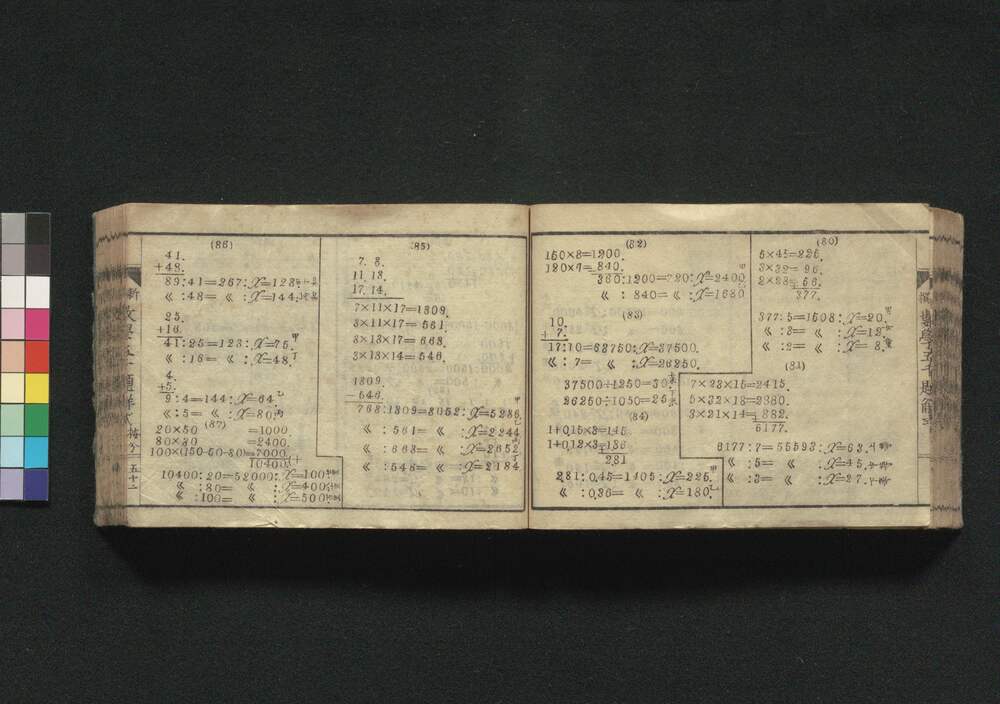 (80)
5×45=225.
3×32= 96.
2×28= 56.
377.
377:5=1508:x=20.
《 :3= 《 :x=12
《 :2= 《 :x= 8.
(81)
7×23×15=2415.
5×32×18=2880.
3×21×14= 882.
6177.
6177:7=55593:x=63.
《 :5= 《 :x=45.
《 :3= 《 :x=27.
(82)
150×8=1200.
120×7= 840.
360:1200=720:x=2400
《 : 840= 《 :x=1680
(83)
10.
+ 7.
17:10=63750:x=37500.
《 : 7= 《 :x=26250.
37500÷1250=30.
26250÷1050=25
(84)
1+0,15×3=145
1+0,12×3=136
281
281:0,45=1405:x=225.
《 :0,36= 《 :x=180.
(85)
7. 8.
11. 13.
17. 14.
7×11×17=1309.
3×11×17= 561.
3×13×17= 663.
3×13×14= 546.
1309.
- 546.
763:1309=3052:x=5236.
《 : 561= 《 :x=2244
《 : 663= 《 :x=2652
《 : 546= 《 :x=2184
(86)
41.
+48.
89:41=267:x=123
《 :48= 《 :x=144.
25.
+16.
41:25=123:x=75.
《 :16= 《 :x=48.
4.
+5.
9:4=144:x=64.
《 :5= 《 :x=80.
(87)
20×50 =1000.
80×30 =2400.
100×(150-50-30)=7000.
10400.
10400:20=52000:x=100
《 :80= 《 :x=400
《 :100= 《 :x=500